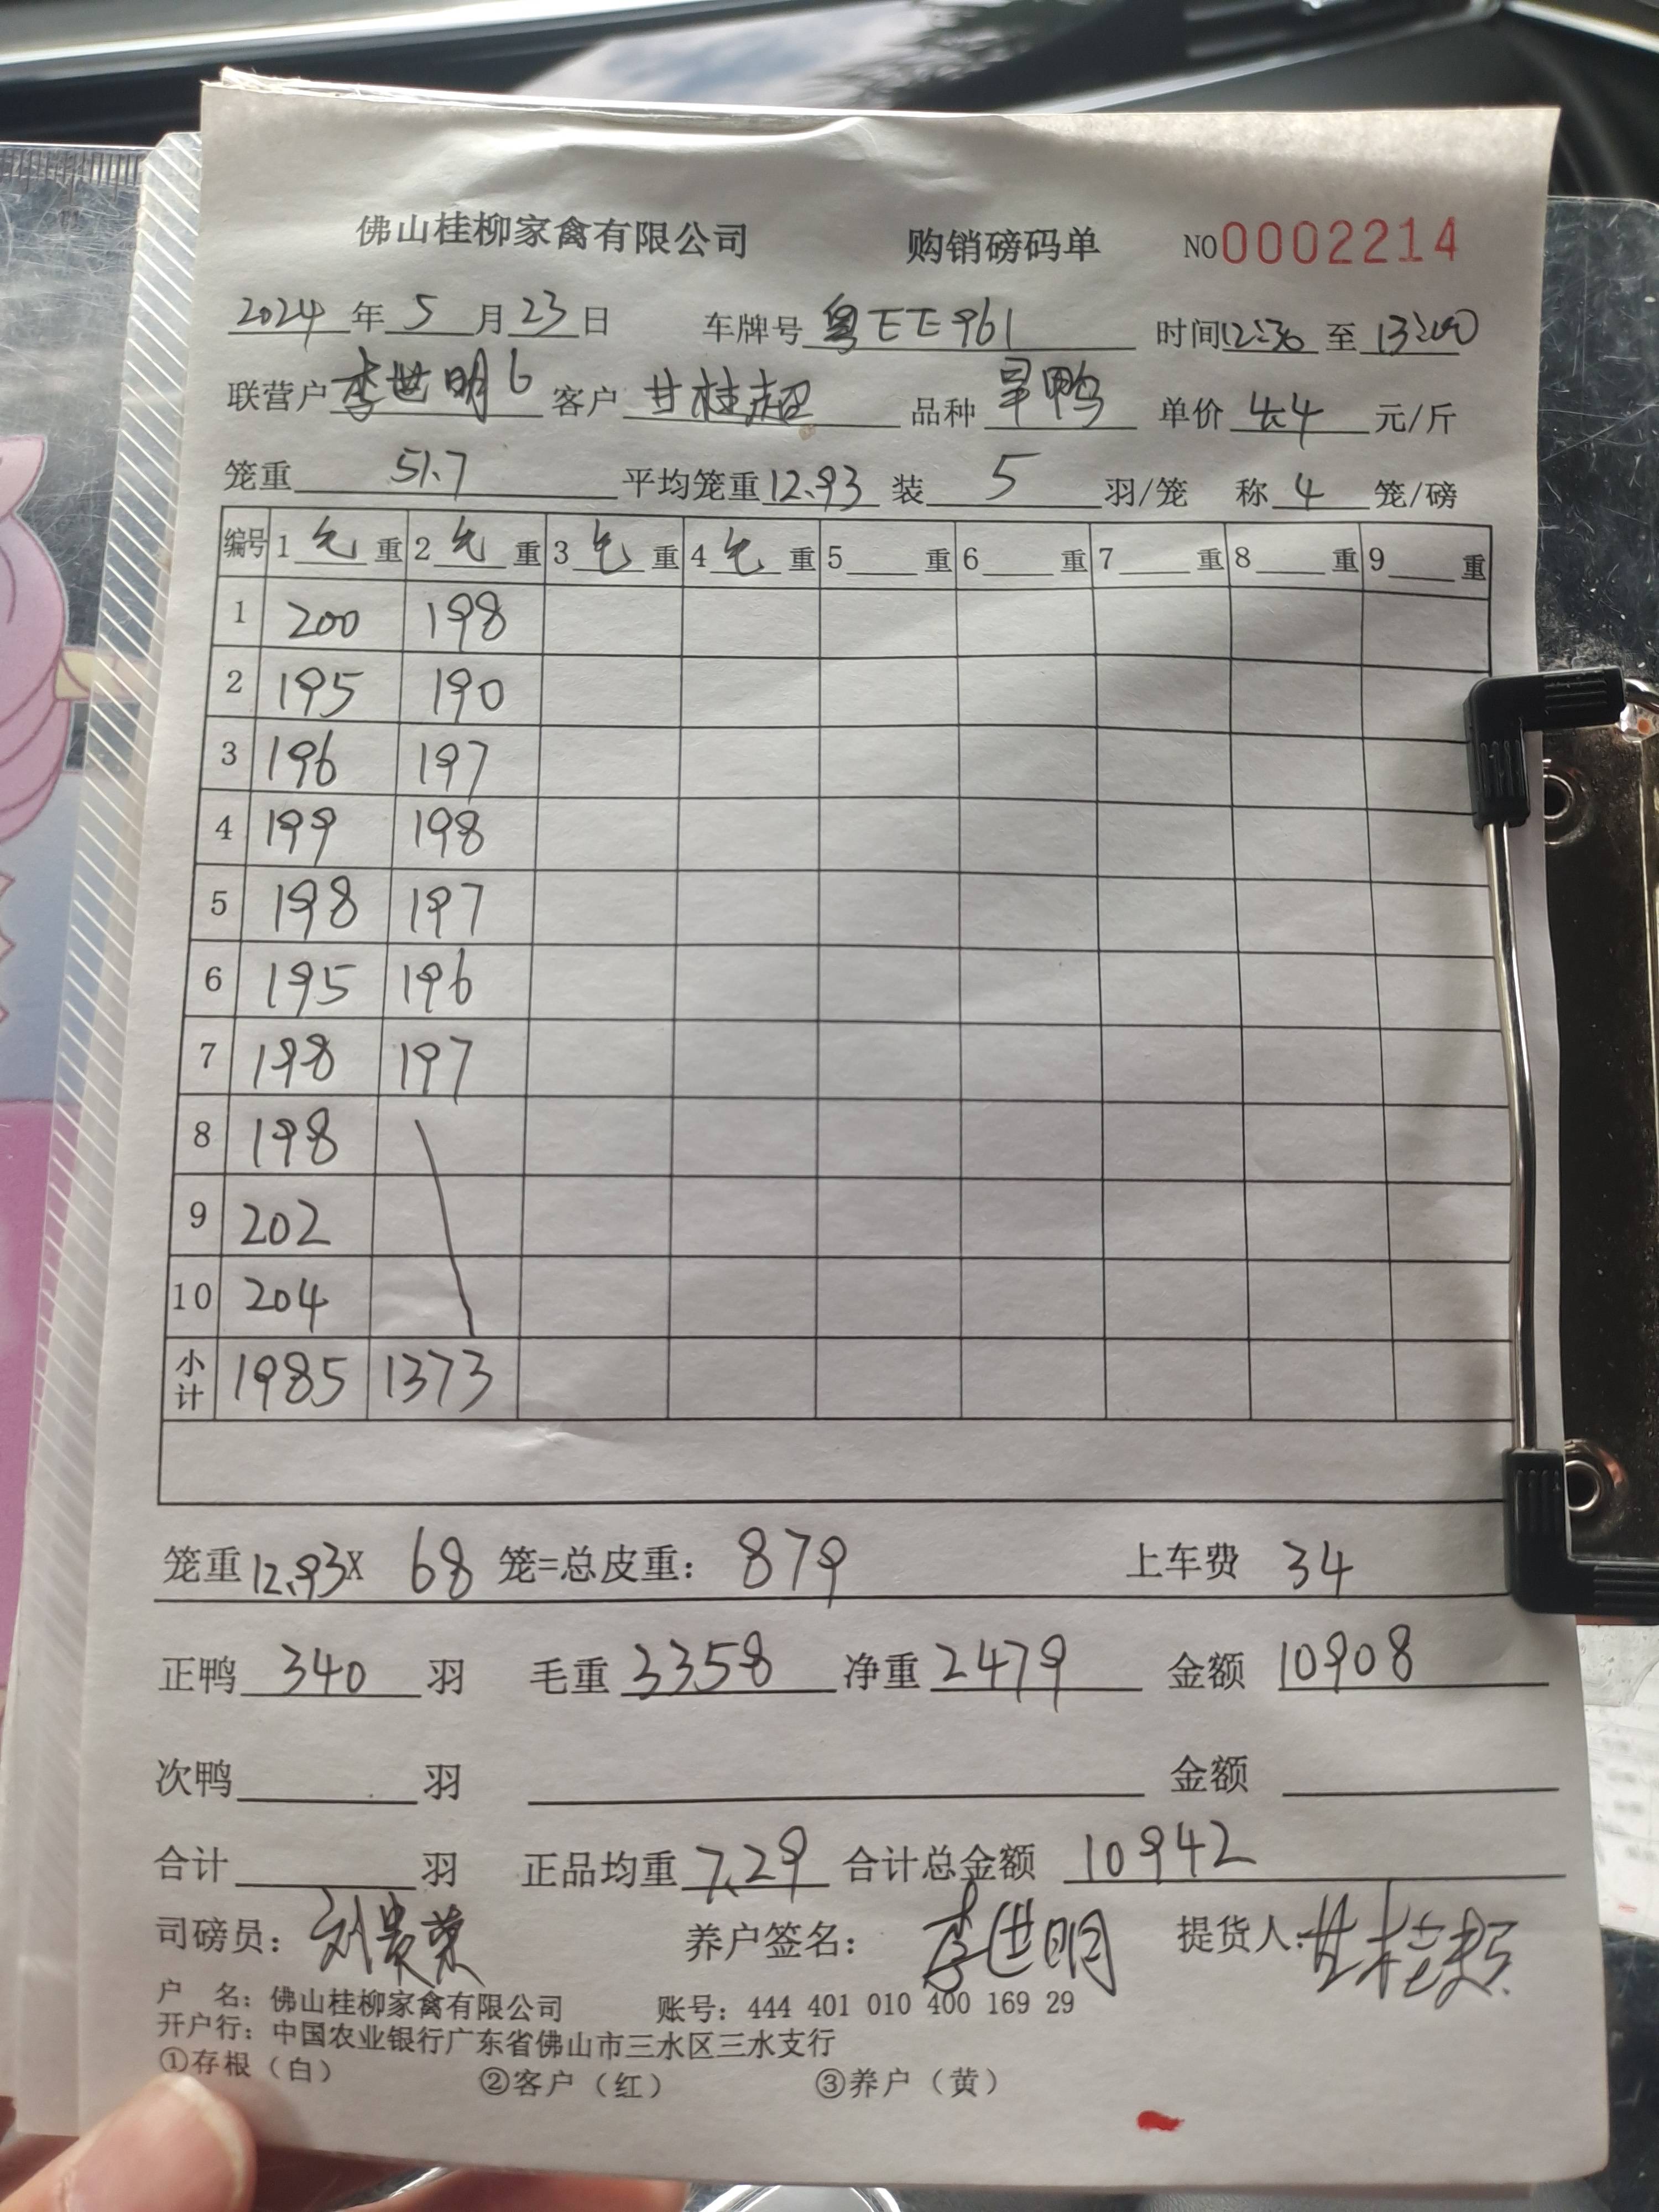 佛山桂柳家禽有限公司 购销磅码单 NO0002214
2024年5月23日 车牌号 粤EE961 时间12:30至13:00
联营户 李世明6 客户 甘桂超 品种 旱鸭 单价 4.4 元/斤
笼重 51.7 平均笼重 12.93 装 5 羽/笼 称 4 笼/磅
编号 1 毛 重 2 毛 重 3 毛 重 4 毛 重 5 重 6 重 7 重 8 重 9 重
1 200 198
2 195 190
3 196 197
4 199 198
5 198 197
6 195 196
7 198 197
8 198
9 202
10 204
小计 1985 1373
笼重 12.93X 68 笼=总皮重： 879 上车费 34
正鸭 340 羽 毛重 3358 净重 2479 金额 10908
次鸭 羽 金额
合计 羽 正品均重 7.29 合计总金额 10942
司磅员：刘贵荣 养户签名：李世明 提货人：甘桂超
户 名：佛山桂柳家禽有限公司 账号：444 401 010 400 169 29
开户行：中国农业银行广东省佛山市三水区三水支行
①存根（白） ②客户（红） ③养户（黄）